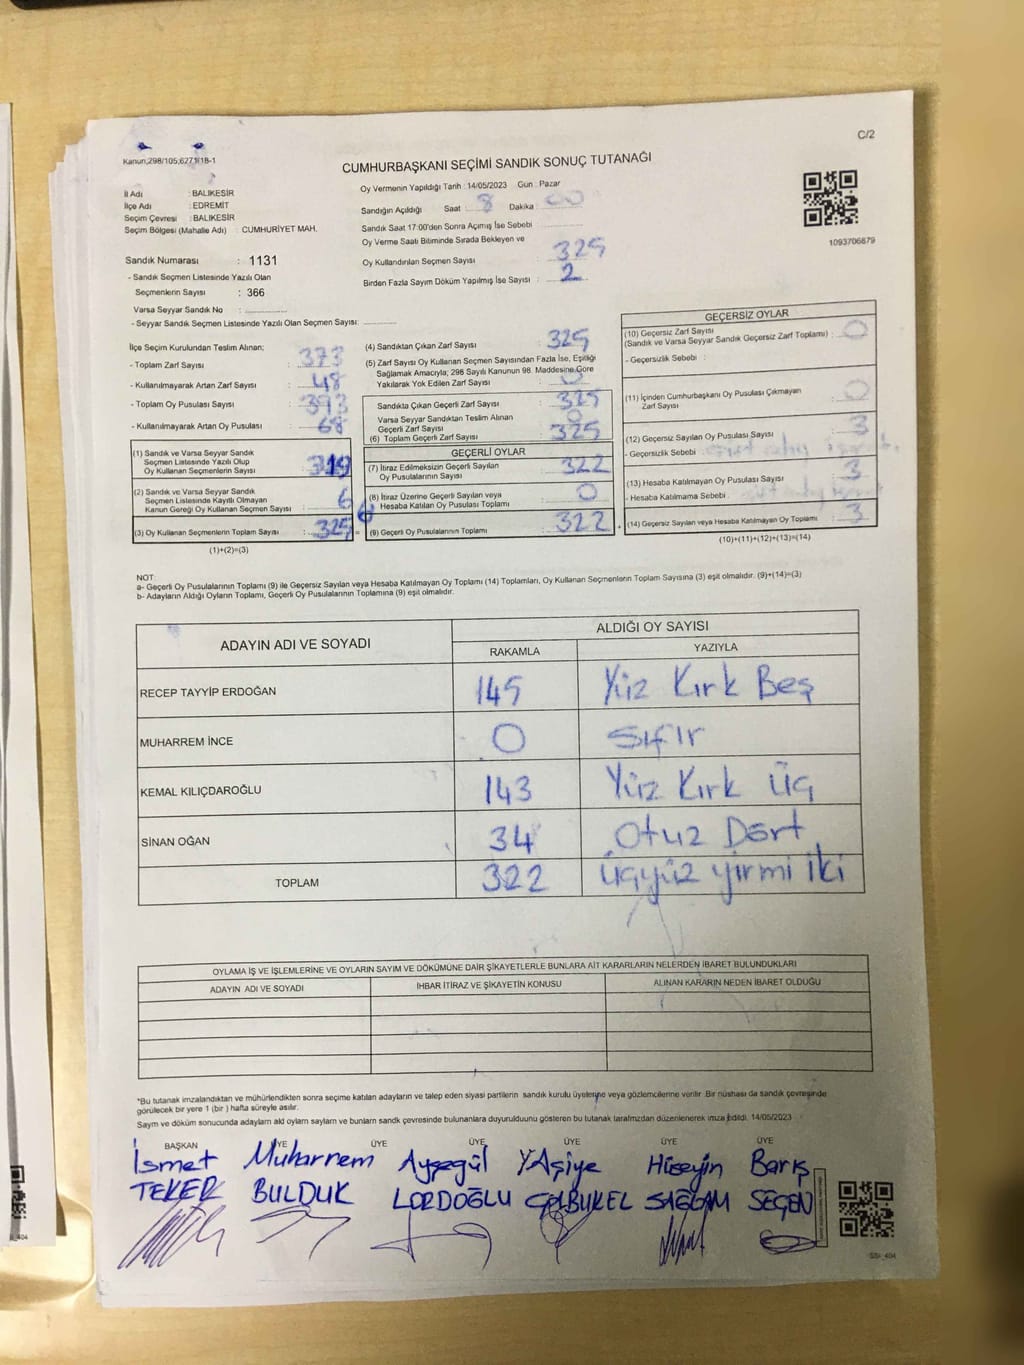 C/2
Kanun;298/105;6271/18-1
CUMHURBAŞKANI SEÇİMİ SANDIK SONUÇ TUTANAĞI
İl Adı : BALIKESİR
İlçe Adı : EDREMIT
Seçim Çevresi : BALIKESİR
Seçim Bölgesi (Mahalle Adı) CUMHURİYET MAH.
Oy Vermenin Yapıldığı Tarih : 14/05/2023 Gün : Pazar
Sandığın Açıldığı Saat : 8 Dakika : 00
Sandık Saat 17:00'den Sonra Açımış İse Sebebi
Oy Verme Saati Bitiminde Sırada Bekleyen ve
Oy Kullandırılan Seçmen Sayısı 325
Birden Fazla Sayım Döküm Yapılmış İse Sayısı : 2
1093706679
Sandık Numarası : 1131
- Sandık Seçmen Listesinde Yazılı Olan
Seçmenlerin Sayısı : 366
Varsa Seyyar Sandık No :
- Seyyar Sandık Seçmen Listesinde Yazılı Olan Seçmen Sayısı:
İlçe Seçim Kurulundan Teslim Alınan;
- Toplam Zarf Sayısı : 373
- Kullanılmayarak Artan Zarf Sayısı : 48
- Toplam Oy Pusulası Sayısı : 393
- Kullanılmayarak Artan Oy Pusulası : 68
(1) Sandık ve Varsa Seyyar Sandık
Seçmen Listesinde Yazılı Olup
Oy Kullanan Seçmenlerin Sayısı : 319
(2) Sandık ve Varsa Seyyar Sandık
Seçmen Listesinde Kayıtlı Olmayan
Kanun Gereği Oy Kullanan Seçmen Sayısı : 6
6
(3) Oy Kullanan Seçmenlerin Toplam Sayısı : 325 =
(1)+(2)=(3)
(4) Sandıktan Çıkan Zarf Sayısı : 325
(5) Zarf Sayısı Oy Kullanan Seçmen Sayısından Fazla İse, Eşitliği
Sağlamak Amacıyla; 298 Sayılı Kanunun 98. Maddesine Göre
Yakılarak Yok Edilen Zarf Sayısı : 0
Sandıkta Çıkan Geçerli Zarf Sayısı : 325
Varsa Seyyar Sandıktan Teslim Alınan
Geçerli Zarf Sayısı : 0
(6) Toplam Geçerli Zarf Sayısı : 325
GEÇERLİ OYLAR
(7) İtiraz Edilmeksizin Geçerli Sayılan
Oy Pusulalarının Sayısı : 322
(8) İtiraz Üzerine Geçerli Sayılan veya
Hesaba Katılan Oy Pusulası Toplamı : 0
(9) Geçerli Oy Pusulalarının Toplamı : 322 +
GEÇERSİZ OYLAR
(10) Geçersiz Zarf Sayısı
(Sandık ve Varsa Seyyar Sandık Geçersiz Zarf Toplamı) : 0
- Geçersizlik Sebebi :
(11) İçinden Cumhurbaşkanı Oy Pusulası Çıkmayan
Zarf Sayısı : 0
(12) Geçersiz Sayılan Oy Pusulası Sayısı : 3
- Geçersizlik Sebebi
(13) Hesaba Katılmayan Oy Pusulası Sayısı : 3
- Hesaba Katılmama Sebebi
(14) Geçersiz Sayılan veya Hesaba Katılmayan Oy Toplamı : 3
(10)+(11)+(12)+(13)=(14)
NOT:
a- Geçerli Oy Pusulalarının Toplamı (9) ile Geçersiz Sayılan veya Hesaba Katılmayan Oy Toplamı (14) Toplamları, Oy Kullanan Seçmenlerin Toplam Sayısına (3) eşit olmalıdır. (9)+(14)=(3)
b- Adayların Aldığı Oyların Toplamı, Geçerli Oy Pusulalarının Toplamına (9) eşit olmalıdır.
ADAYIN ADI VE SOYADI ALDIĞI OY SAYISI
RAKAMLA YAZIYLA
RECEP TAYYİP ERDOĞAN 145 Yüz Kırk Beş
MUHARREM İNCE 0 Sıfır
KEMAL KILIÇDAROĞLU 143 Yüz Kırk Üç
SİNAN OĞAN 34 Otuz Dört
TOPLAM 322 Üçyüz yirmi iki
OYLAMA İŞ VE İŞLEMLERİNE VE OYLARIN SAYIM VE DÖKÜMÜNE DAİR ŞİKAYETLERLE BUNLARA AİT KARARLARIN NELERDEN İBARET BULUNDUKLARI
ADAYIN ADI VE SOYADI İHBAR İTİRAZ VE ŞİKAYETİN KONUSU ALINAN KARARIN NEDEN İBARET OLDUĞU
*Bu tutanak imzalandıktan ve mühürlendikten sonra seçime katılan adayların ve talep eden siyasi partilerin sandık kurulu üyelerine veya gözlemcilerine verilir. Bir nüshası da sandık çevresinde
görülecek bir yere 1 (bir ) hafta süreyle asılır.
Sayım ve döküm sonucunda adayların ald oyların sayların ve bunların sandk çevresinde bulunanlara duyurulduunu gösteren bu tutanak tarafmzdan düzenlenerek imza edildi. 14/05/2023
BAŞKAN ÜYE ÜYE ÜYE ÜYE ÜYE ÜYE
İsmet Muharrem Ayşegül YAşiye Hüseyin Barış
TEKER BULDUK LORDOĞLU SAĞLAM SEÇEN